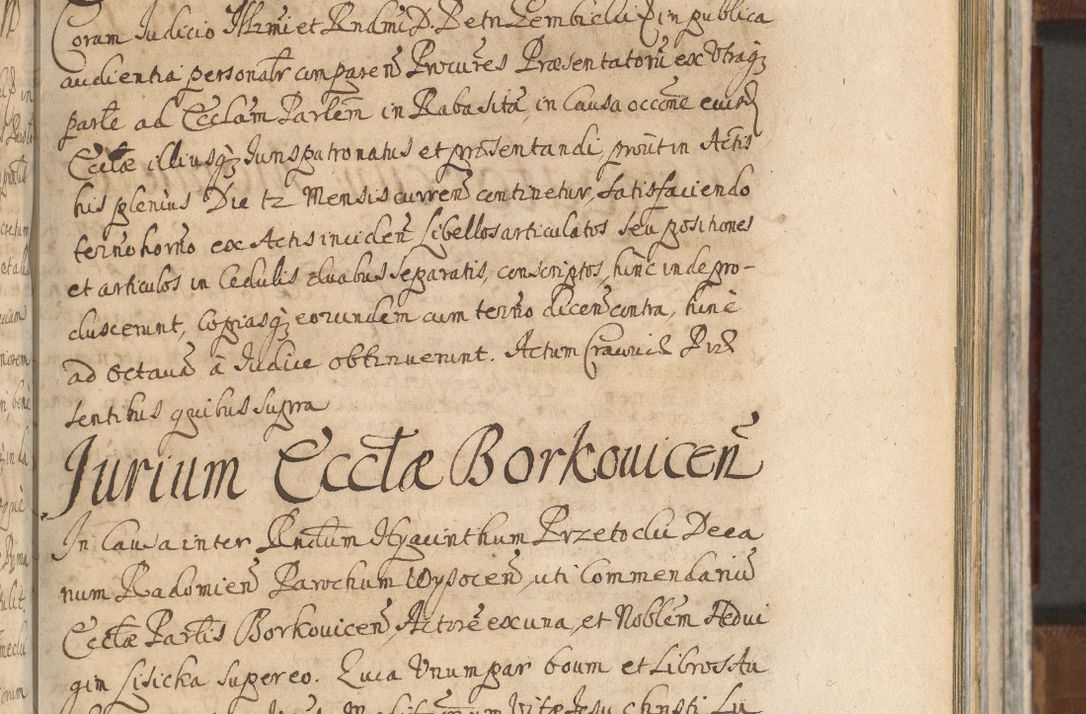 Coram Judicio Illmi et Rndmi D. Petri Gembicki in publica
audientia personalr comparen Procures Præsentatoru ex Utraqz
parte ad Ecclam Parlem in Raba sita, in Causa occõne eiusd
Ecclæ illiusqz Jurispatronatus et præsentandi, prout in Actis
his plenius Die 12 Mensis curren continetur, satisfaciendo
termo horno ex Actis inciden Libellos articulatos seu positiones
et articulos in Cedulis duabus separatis, conscriptos, hinc inde pro-
duxerunt, Copiasqz eorundem cum termo dicen contra, hinc
ad Octava à Judice obtinuerunt. Actum Præ
sentibus quibus supra
Jurium Ecclæ Borkovicen
In Causa inter Rndum Hyacinthum Przetocki Deca
num Radomien Parochum Wysocen, uti Commendariu
Ecclæ Parlis Borkovicen Actore ex una, et Noblem Hedvi
gim Lisicka super eo. Quia Unum par boum et Libros Au
Vitæ Jesu Christi Lu